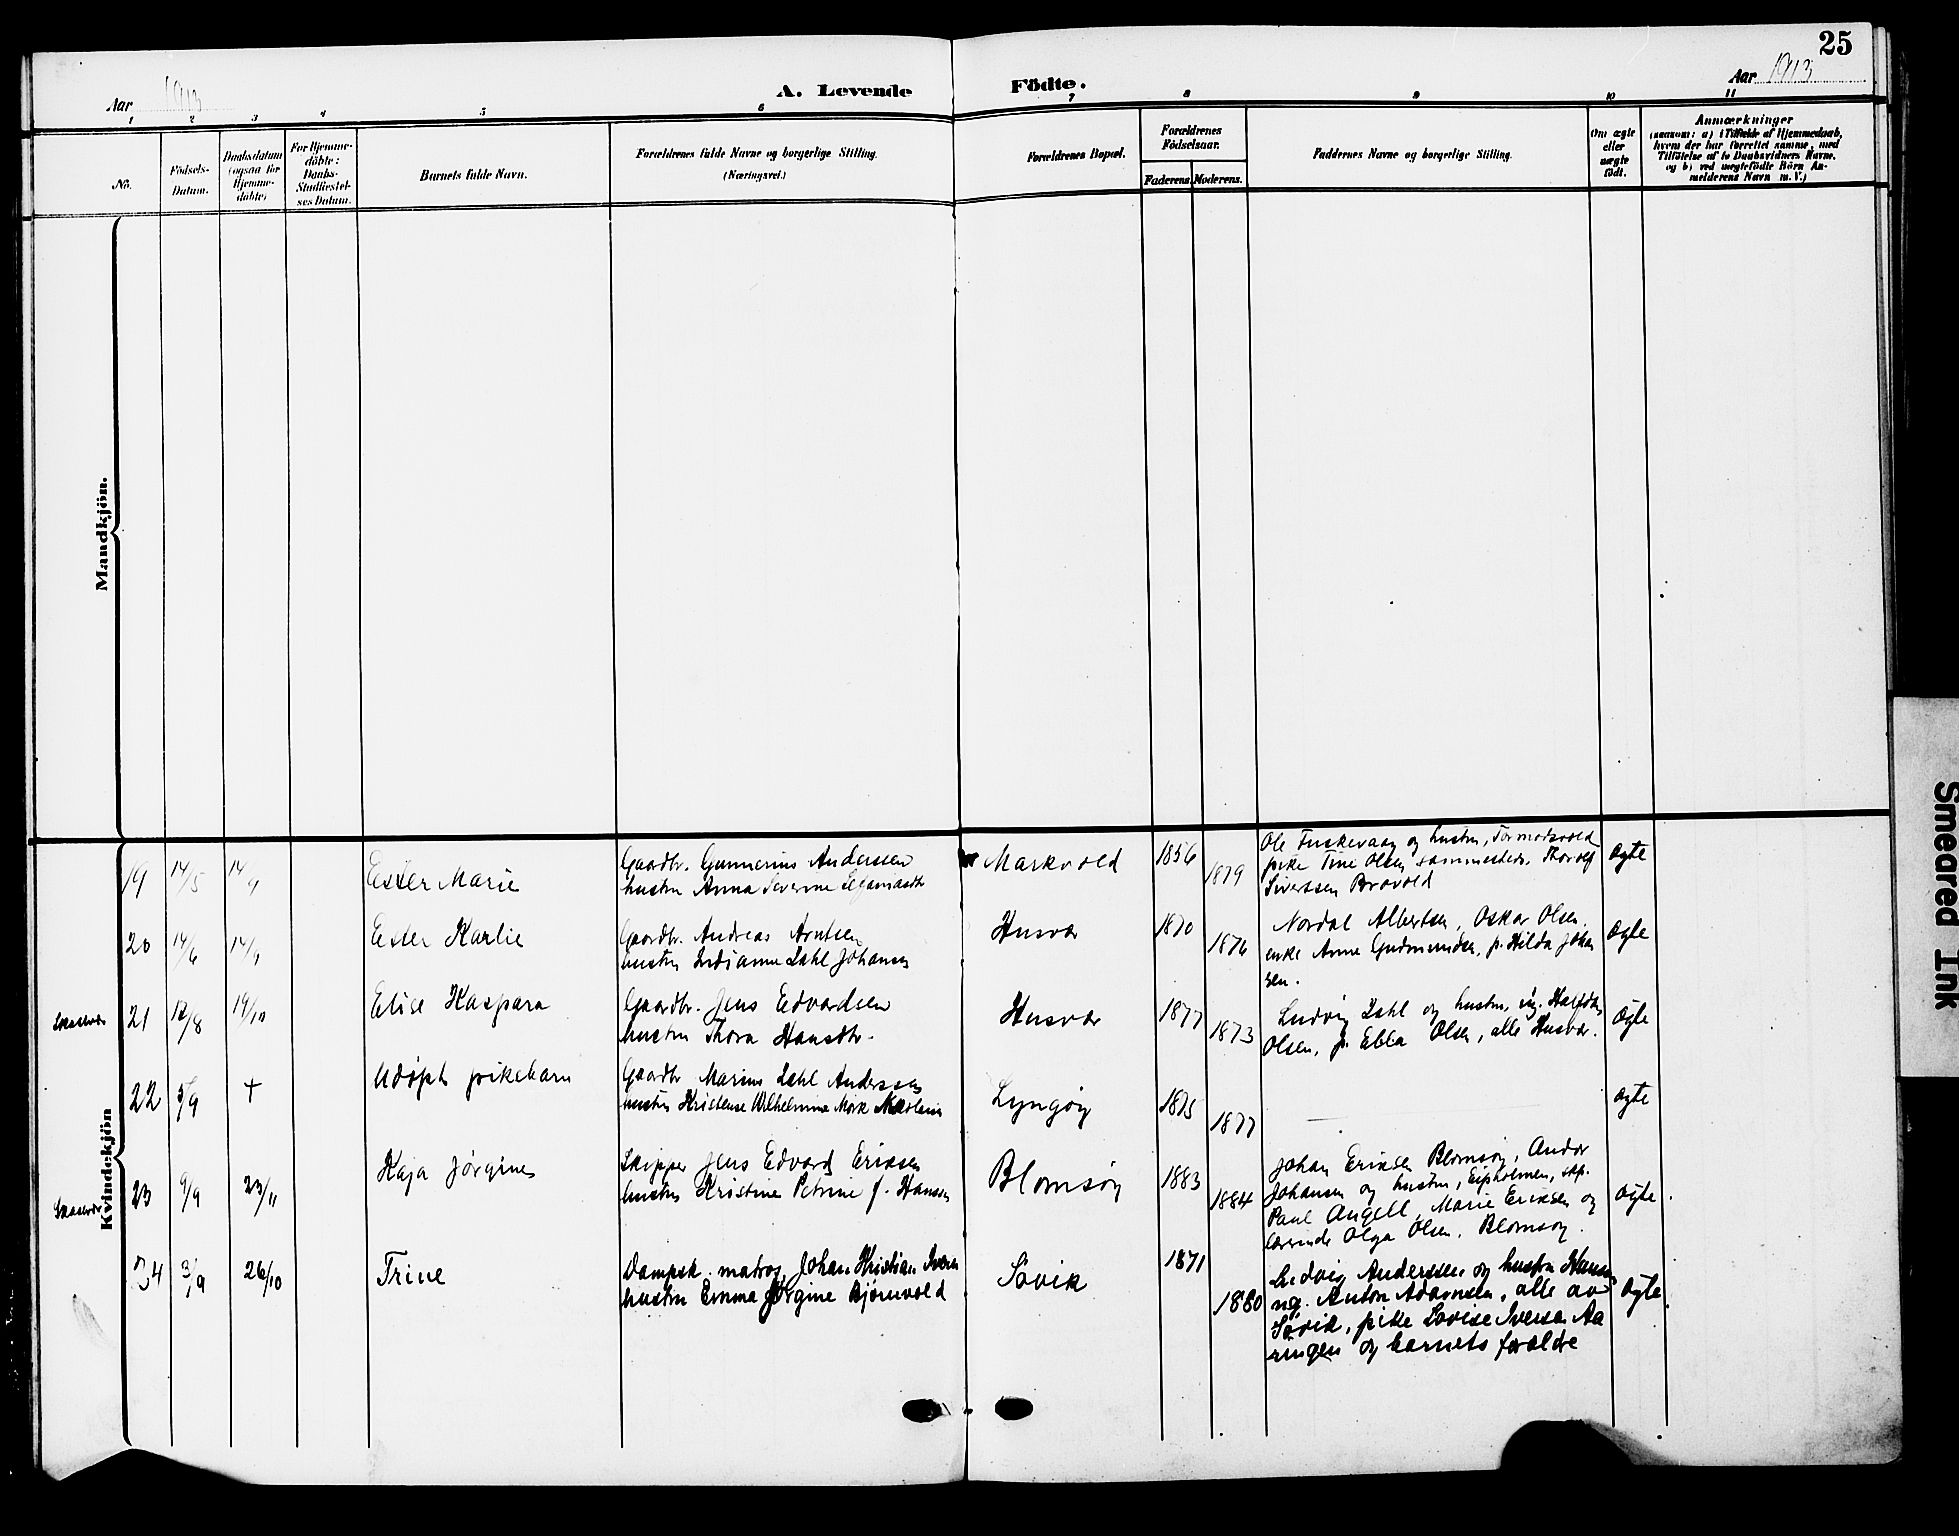 25
Aar 1913
A. Levende Födte.
Aar 1913
1 2 3 4 5 6 7 8 9 10 11
No.
Födsels-
Datum.
Daabsdatum
(ogsaa for
Hjemme-
døbte)
For Hjemme-
döbte:
Daabs-
Stadfæstel-
ses Datum.
Barnets fulde Navn.
Forældrenes fulde Navne og borgerlige Stilling.
(Næringsvei.)
Forældrenes Bopæl.
Forældrenes
Födselsaar.
Faderens. Moderens.
Faddernes Navne og borgerlige Stilling.
Om ægte
eller
uægte
født.
Anmærkninger
(saasom: a) i Tilfælde af Hjemmedaab,
hvem der har forrettet samme, med
Tilföielse af to Daabsvidners Navne,
og b) ved uægtefödte Börn An-
melderens Navn m. V.)
Mandkjön.
Kvindekjön
19 14/5 14/9 Ester Marie
Gaardbr. Gunnerius Anderssen
hustru Anna Severine
Markvold 1856 1879
Ole og hustru, Tormodsvold
pike Tine Olsen sammesteds. Thorolf
Sivertsen Brovold
ægte
20 14/6 14/9 Ester Karlie
Gaardbr. Andreas Arntsen
hustru Indianna Dahl Johansen
Husvær 1870 1876
Nordal Albertsen, Oskar Olsen.
enke Anne Gudmundsen, p. Hilda Johan
sen.
ægte
21 12/8 19/10 Elise Kaspara
Gaardbr. Jens Edvardsen
hustru Thora Hansdtr.
Husvær 1877 1873
Ludvig Dahl og hustru, ug. Halfdan
Olsen, p. Ebba Olsen, alle Husvær.
Ægte
22 5/9 + Udøpt pikebarn
Gaardbr Marius Dahl Anderssen
hustru Kristense Wilhelmine Mørk
Lyngøy 1875 1877
ægte
23 9/9 23/11 Kaja Jørgine
Skipper Jens Edvard Eriksen
hustru Kristine Petrine f. Hansen
Blomsøy 1883 1884
Johan Eriksen Blomsøy, Andor
Johansen og hustru,
Paul Angell, Marie Eriksen og
lærerinde Olga Olsen. Blomsøy.
ægte.
24 3/9 26/10 Trine
Dampsk. matros Johan Kristian Iversen
hustru Emma Jørgine Bjørnvold
Søvik 1871 1880
Ludvig Anderssen og hustru
ug. Anton Adamsen, alle av
Søvik, pike Lovise Iversen Aa
og barnets forældre
Ægte.
Smeared Ink